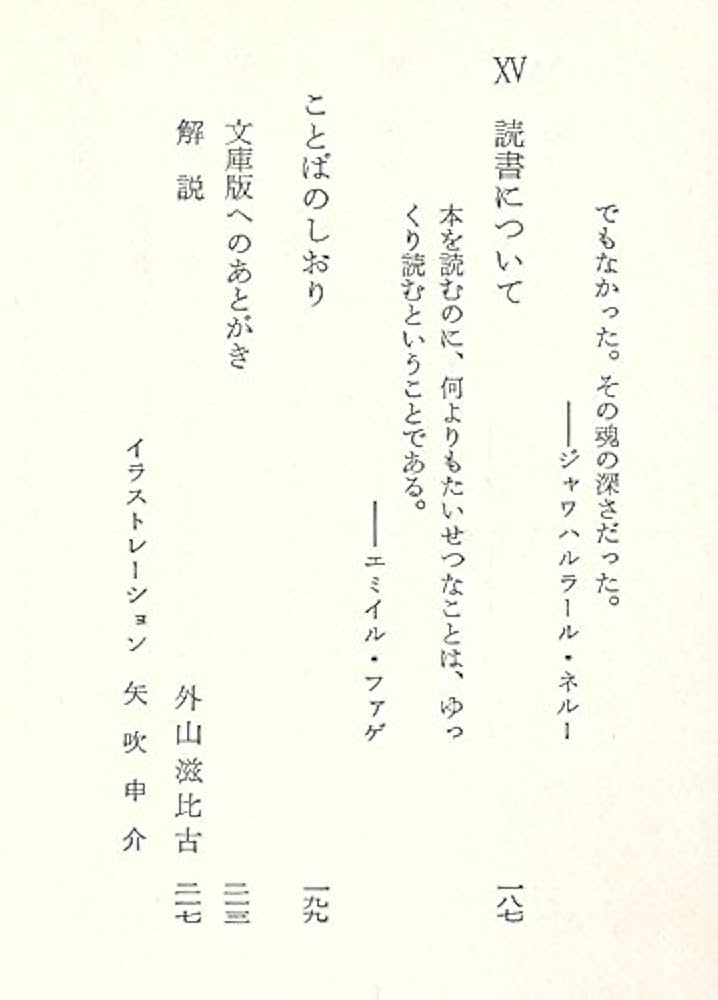 でもなかった。その魂の深さだった。
――ジャワハルラール・ネルー
XV 読書について 一八七
本を読むのに、何よりもたいせつなことは、ゆっ
くり読むということである。
――エミイル・ファゲ
ことばのしおり 一九九
文庫版へのあとがき 二一三
解説 外山滋比古 二一七
イラストレーション 矢吹申介